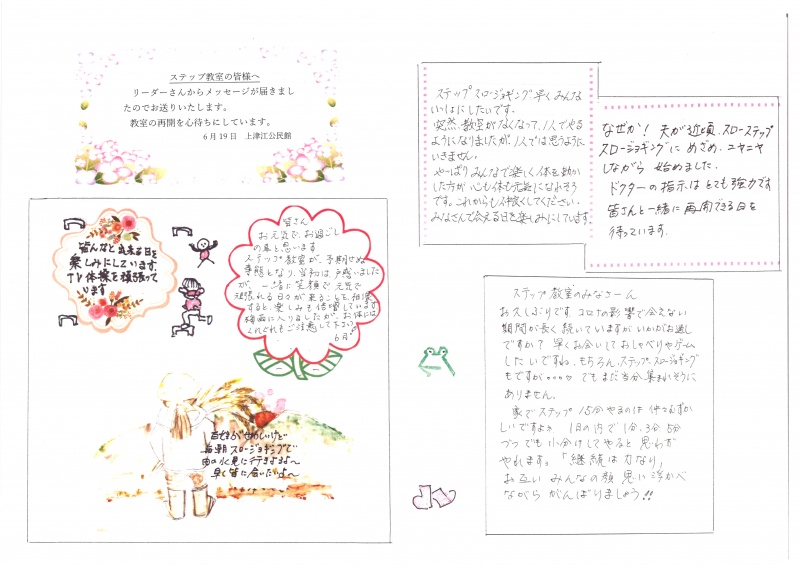 ステップ教室の皆様へ
リーダーさんからメッセージが届きまし
たのでお送りいたします。
教室の再開を心待ちにしています。
6月19日 上津江公民館
皆んなと出来る日を
楽しみにしています
TV体操を頑張って
います
皆さん
お元気で、お過ごし
の事と思います
ステップ教室が、予期せぬ
事態となり、当初は戸惑いました
が、一緒に笑顔で元気で
頑張れる日々が来ることを、想像
すると楽しみも倍増しています
梅雨に入りましたが、お体には
くれぐれもご注意して下さい
6月
毎朝スロージョギングで
田の水見に行きよるよ～
早く皆に会いたいよ～
ステップスロージョギング早くみんな
いっしょにしたいです。
突然、教室がなくなって、1人でやる
ようになりましたが、1人では思うように
いきません。
やっぱりみんなで楽しく体を動か
した方が心も体も元気になれそう
です。これからも仲良くしてください。
みなさんで会える日を楽しみにしています
なぜか! 夫が近頃、スローステップ
スロージョギングにめざめ、ニヤニヤ
しながら始めました。
ドクターの指示はとても強力です
皆さんと一緒に再開できる日を
待っています。
ステップ教室のみなさーん
お久しぶりです コロナの影響で会えない
期間が長く続いていますが、いかがお過し
ですか? 早くお会いしておしゃべりやゲーム
したいですね、もちろん、ステップ、スロージョギング
もですが。。。。でもまだ当分集まれそうに
ありません。
家でステップ15分やるのは仲々むずか
しいですよね 1日の内で1分、3分、5分
づつでも小分けしてやると思わず
やれます。「継続は力なり」
お互いみんなの顔思い浮かべ
ながらがんばりましょう!!